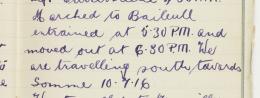 Marched to Baileull
entrained at 5:30 P.M. and
moved out at 6:30 P.M. We
are travelling south, towards
Somme 10-7-16